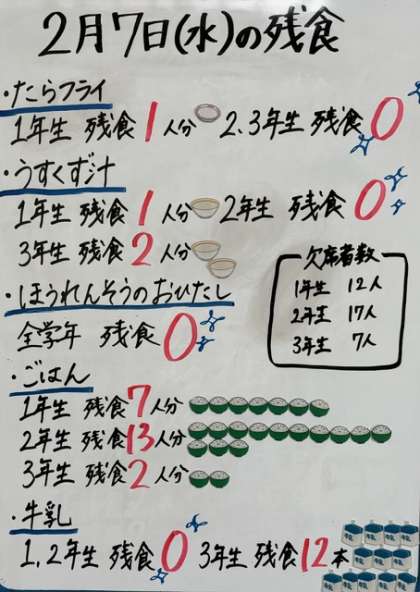 2月7日(水)の残食
・たらフライ
1年生 残食1人分 2、3年生 残食0
・うすくず汁
1年生 残食1人分 2年生 残食0
3年生 残食2人分
欠席者数
1年生 12人
2年生 17人
3年生 7人
・ほうれんそうのおひたし
全学年 残食0
・ごはん
1年生 残食7人分
2年生 残食13人分
3年生 残食2人分
・牛乳
1、2年生 残食0 3年生 残食12本